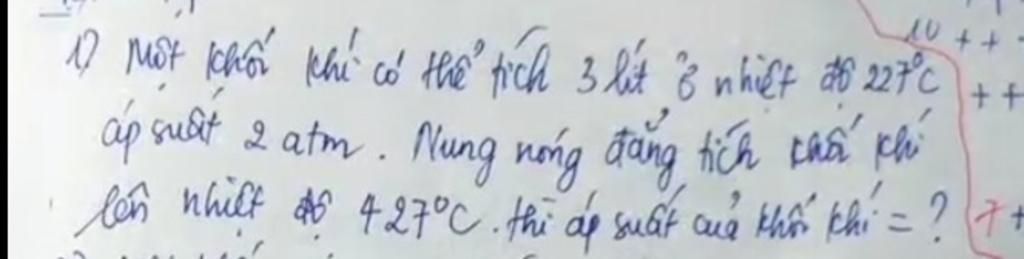 1) Một khối khí có thể tích 3 lít ở nhiệt độ 227°C
áp suất 2 atm. Nung nóng đẳng tích khối khí
lên nhiệt độ 427°C. thì áp suất của khối khí = ?
10 + +
+ +
7 +